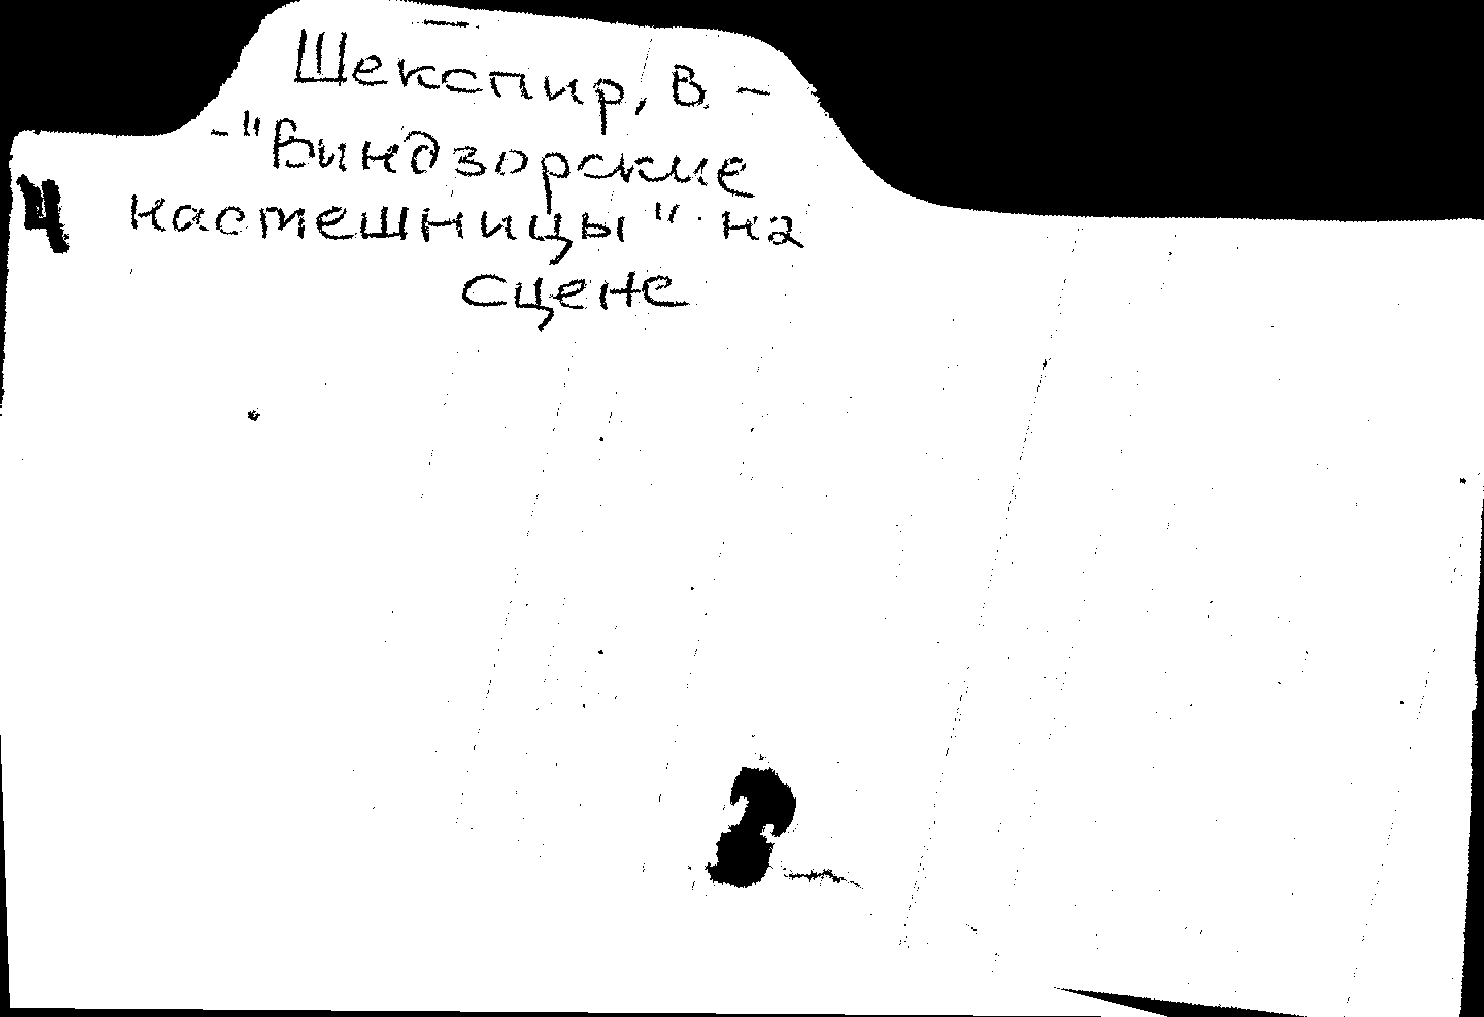 Шекспир, В. –
– "Виндзорские
4 насмешницы" на
сцене